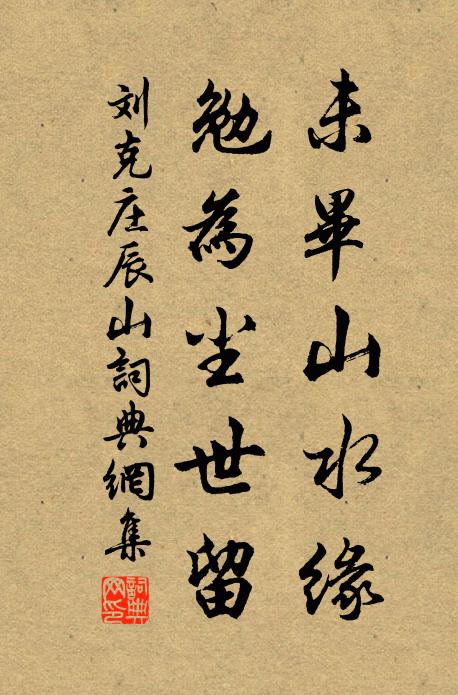 未畢山水緣
勉為尘世留
刘克庄辰山詞典網集
詞典网印